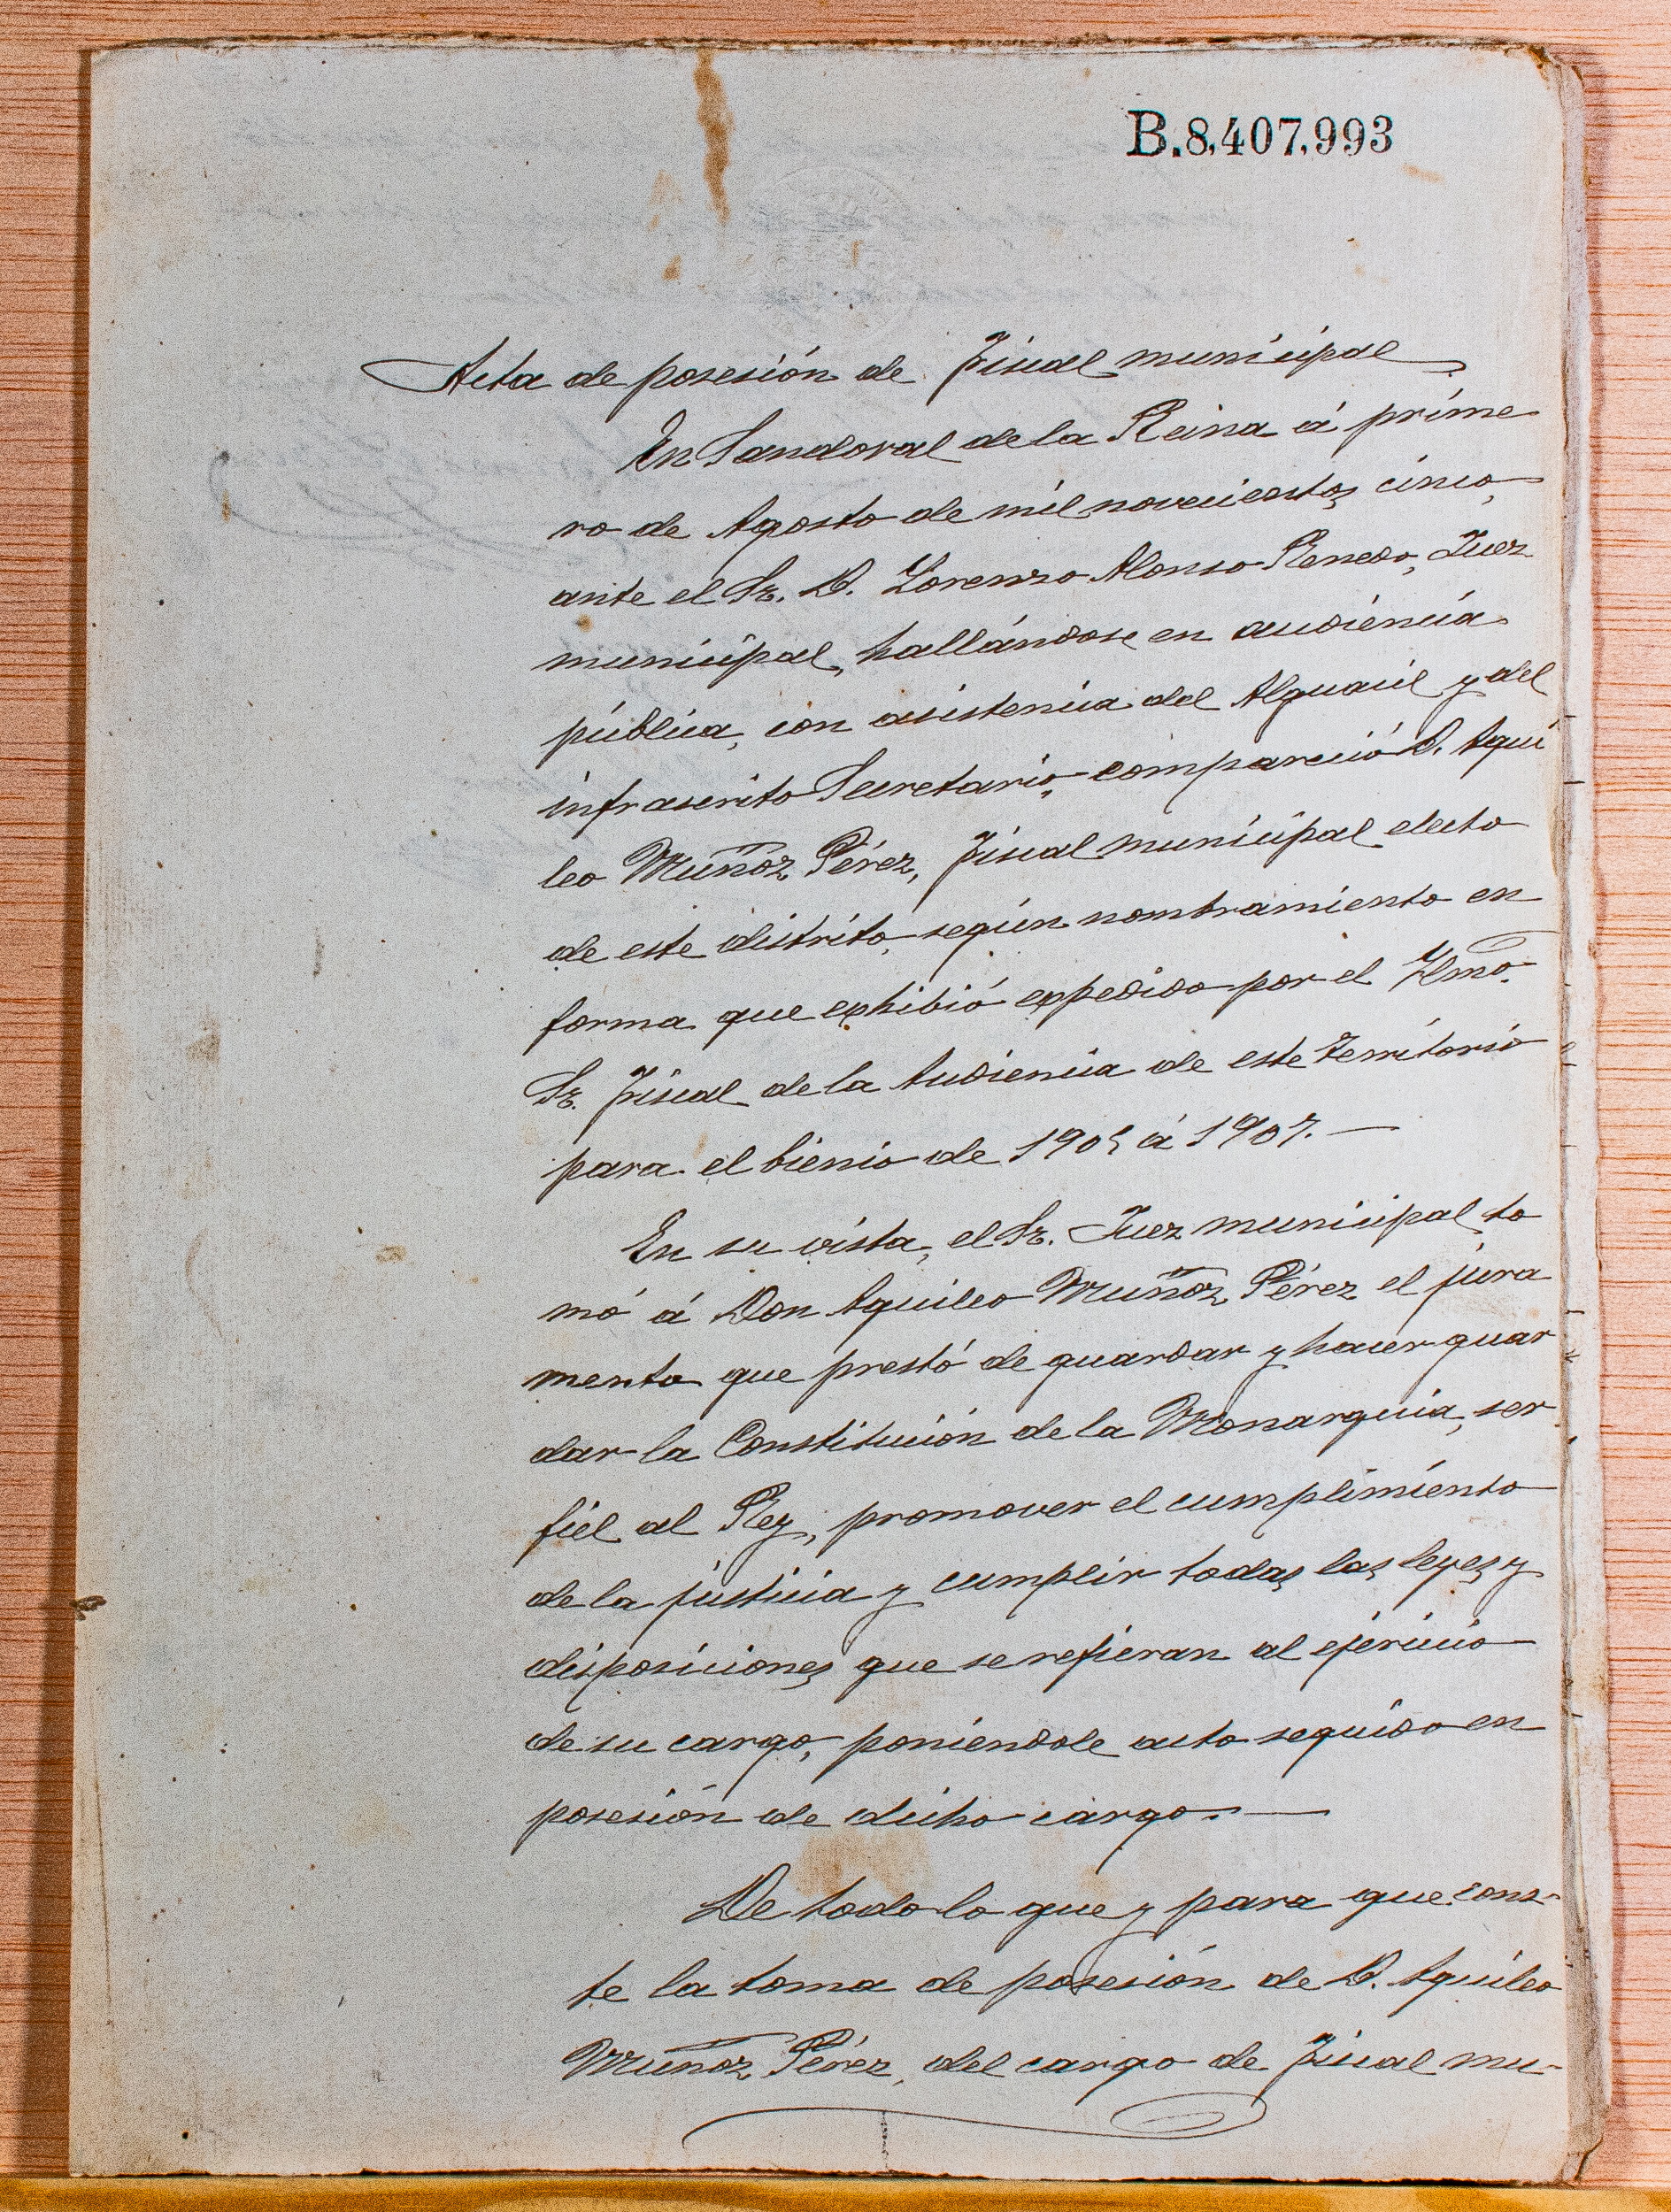 B.8,407,993
Acta de posesión de Fiscal municipal
En Sandoval de la Reina á prime
ro de Agosto de mil novecientos cinco,
ante el Sr. D. Lorenzo Alonso Renedo, Juez
municipal, hallándose en audiencia
pública, con asistencia del Alguacil y del
infrascrito Secretario, compareció D. Aqui
leo Muñoz Pérez, Fiscal municipal electo
de este distrito, según nombramiento en
forma que exhibió expedido por el Ylmo.
Sr. Fiscal de la Audiencia de este Territorio
para el bienio de 1905 á 1907.—
En su vista, el Sr. Juez municipal to
mó á Don Aquileo Muñoz Pérez el jura
mento que prestó de guardar y hacer guar
dar la Constitución de la Monarquia, ser
fiel al Rey, promover el cumplimiento
de la justicia y cumplir todas las leyes y
disposiciones que se refieran al ejercicio
de su cargo, poniendole acto seguido en
posesión de dicho cargo.—
De todo lo que y para que cons-
te la toma de posesión de D. Aquileo
Muñoz Pérez, del cargo de Fiscal mu-